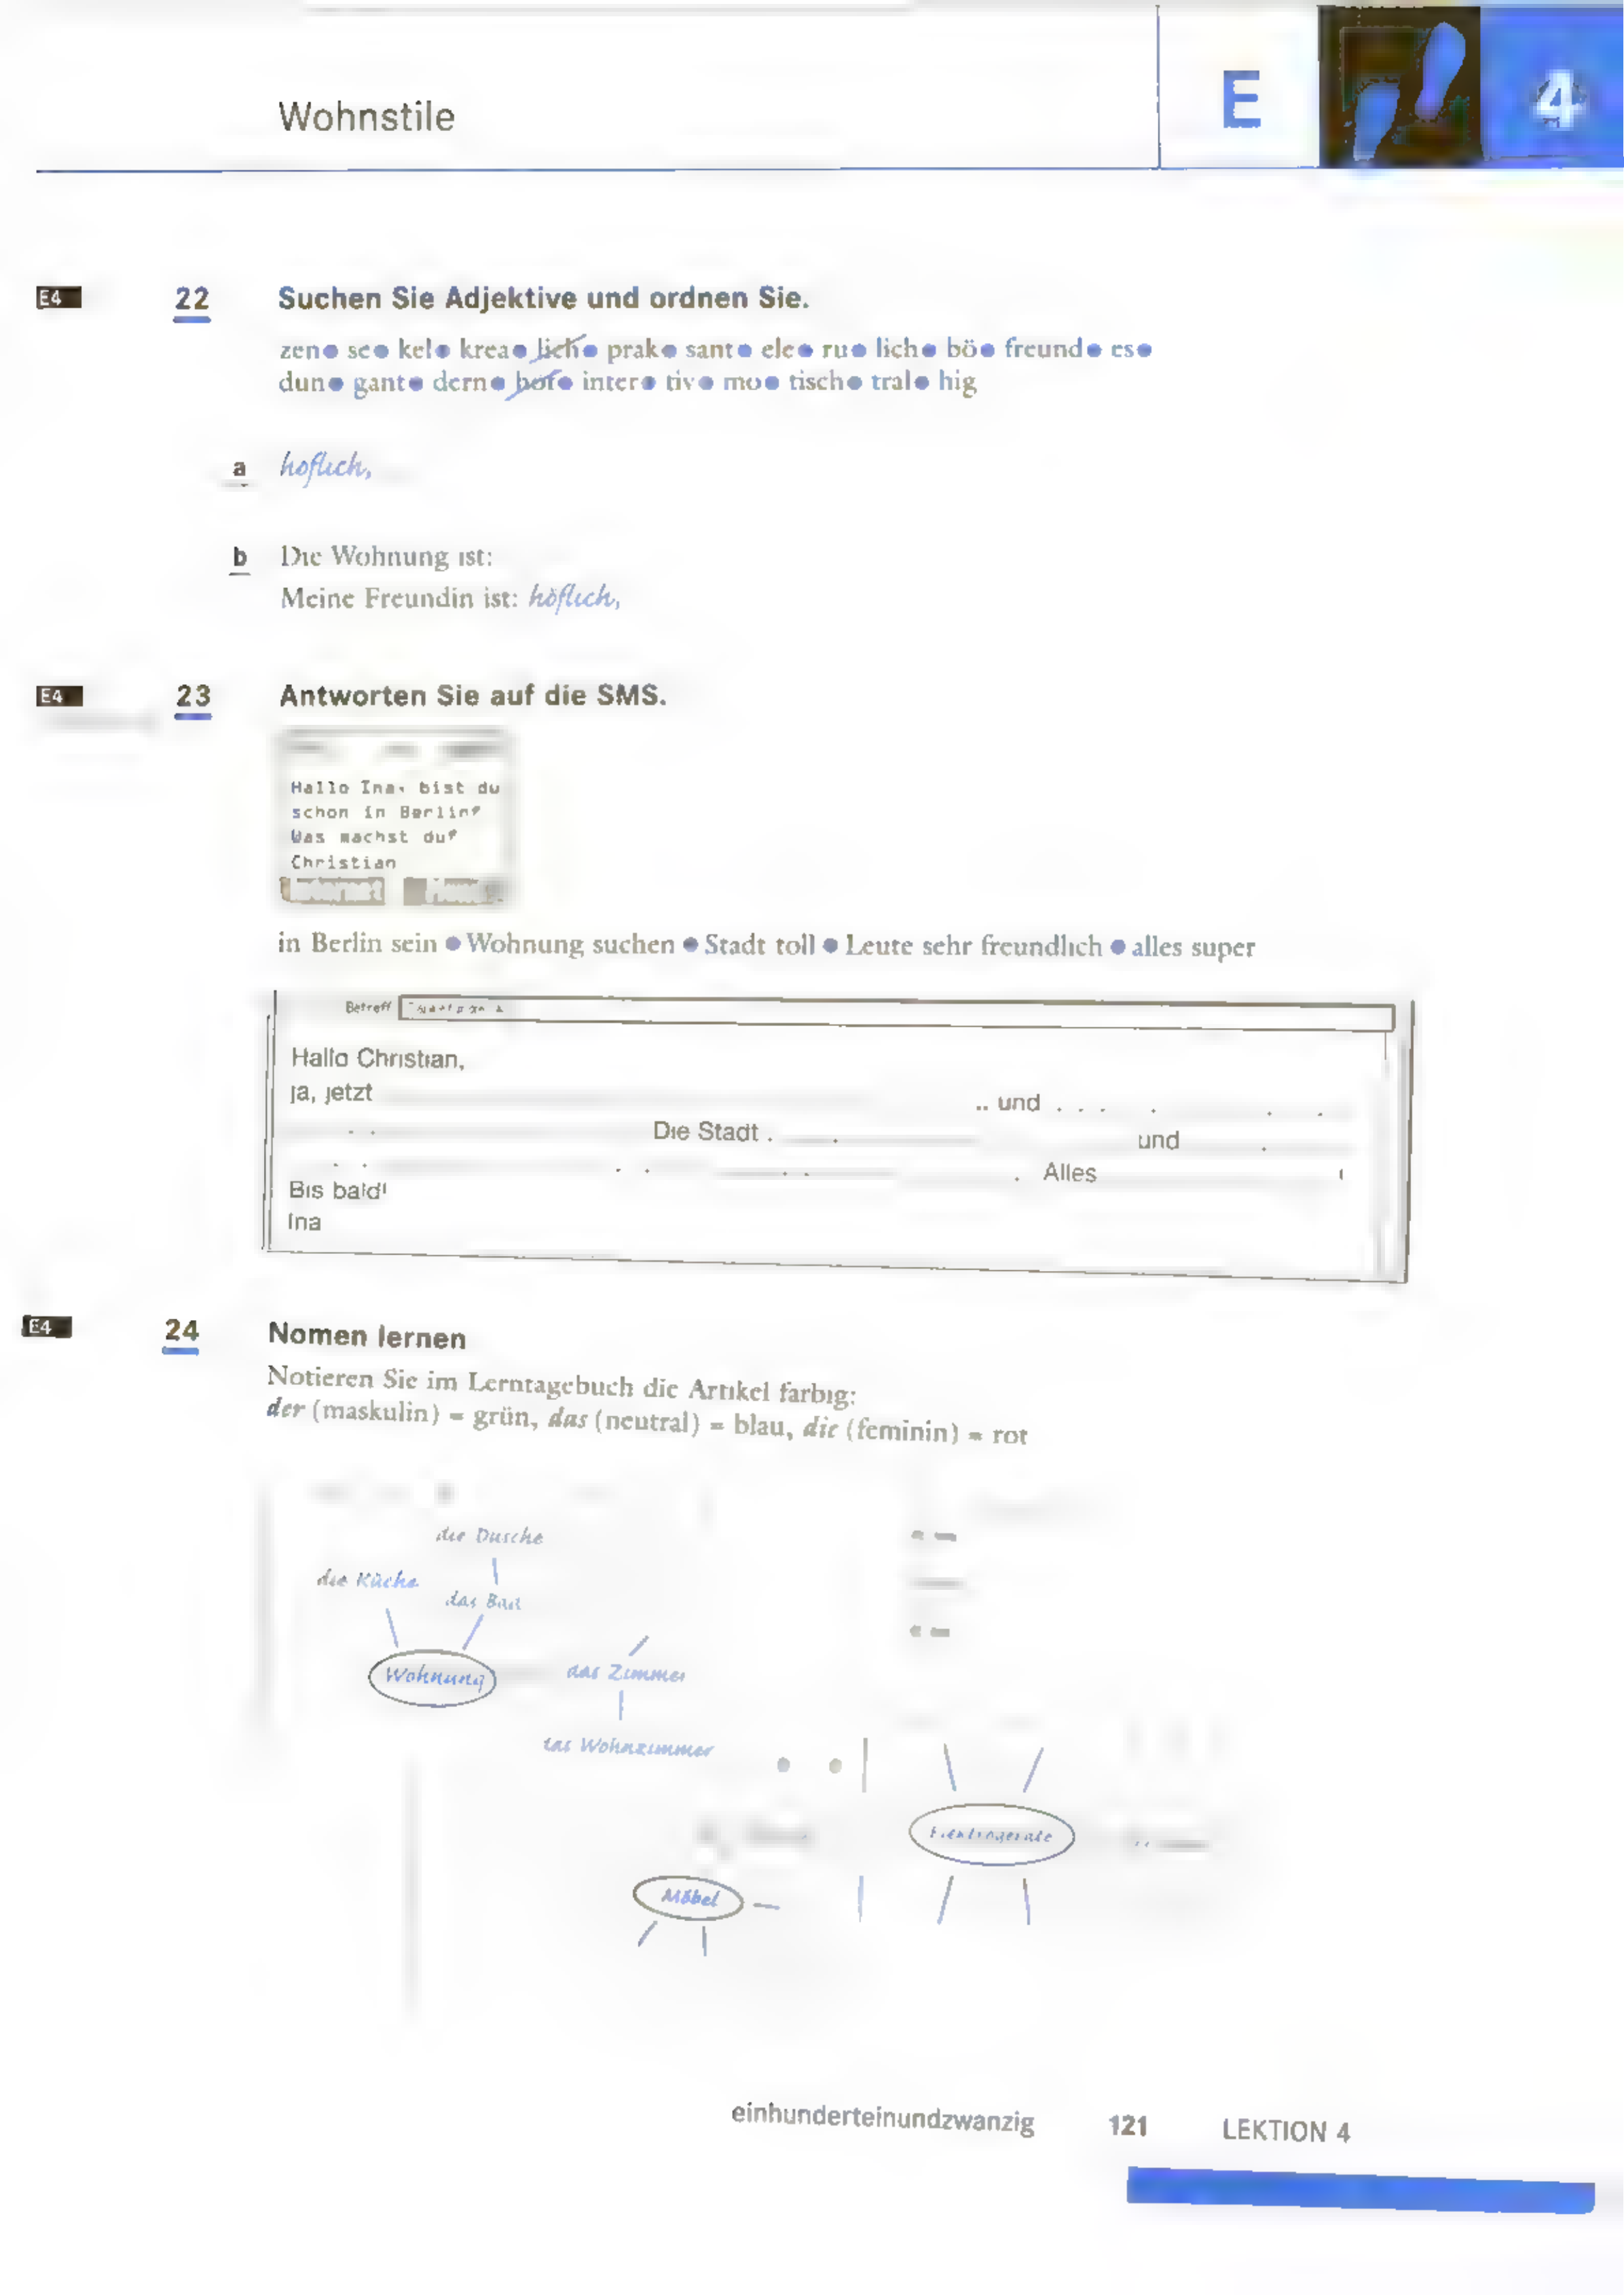 Wohnstile
E
4
E4
22
Suchen Sie Adjektive und ordnen Sie.
zen● se● kel● krea● lich● prak● sant● ele● ru● lich● bö● freund● es●
dun● gant● dern● höf● inter● tiv● mo● tisch● tral● hig
a höflich,
b Die Wohnung ist:
Meine Freundin ist: höflich,
E4
23
Antworten Sie auf die SMS.
Hallo Ina, bist du
schon in Berlin?
Was machst du?
Christian
in Berlin sein ● Wohnung suchen ● Stadt toll ● Leute sehr freundlich ● alles super
Betreff
Hallo Christian,
ja, jetzt und
Die Stadt und
. Alles
Bis bald!
Ina
E4
24
Nomen lernen
Notieren Sie im Lerntagebuch die Artikel farbig:
der (maskulin) = grün, das (neutral) = blau, die (feminin) = rot
die Dusche
die Küche
das Bad
Wohnung
das Zimmer
das Wohnzimmer
Elektrogeräte
Möbel
einhunderteinundzwanzig 121 LEKTION 4